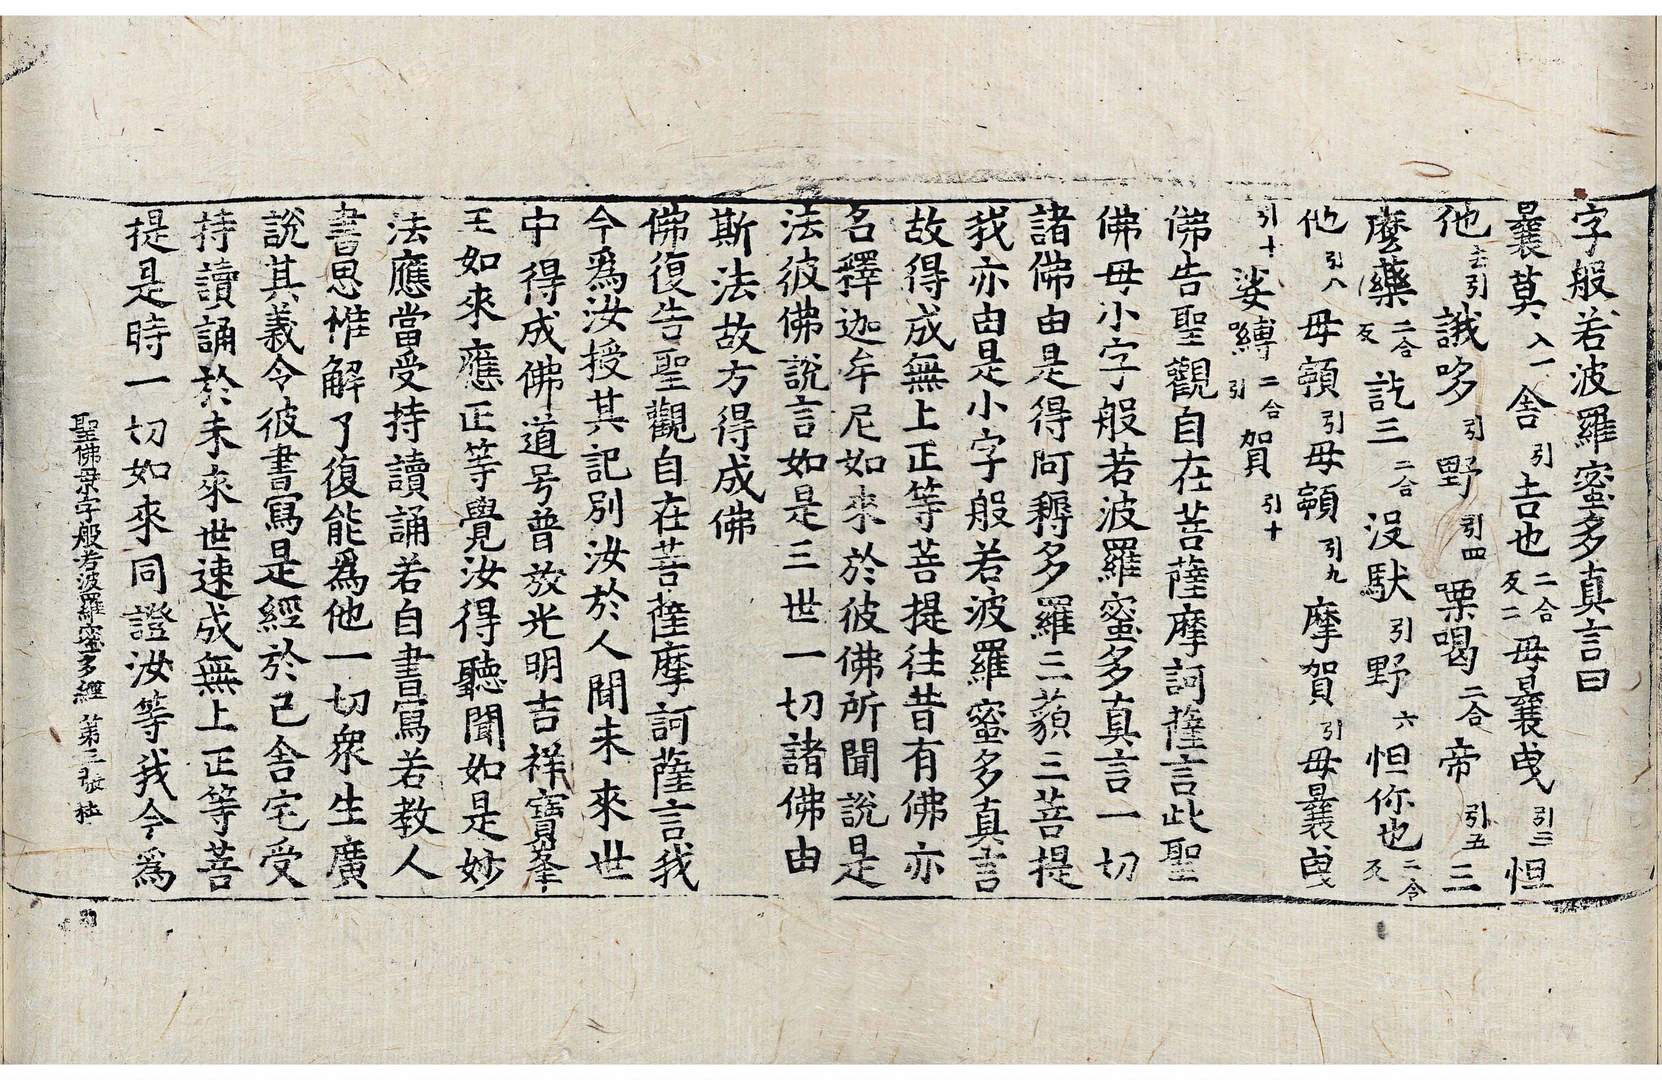 字般若波羅蜜多真言曰
曩莫入一舍引吉也二合反二母曩曳引三怛
他去引誐哆引野引四㗚喝二合帝引五三
麼藥二合反訖三二合沒馱引野六怛你也二合反
他引八母頓引母頓引九摩賀引母曩曳
引十娑嚩二合引賀引十
佛告聖觀自在菩薩摩訶薩言此聖
佛母小字般若波羅蜜多真言一切
諸佛由是得阿耨多羅三藐三菩提
我亦由是小字般若波羅蜜多真言
故得成無上正等菩提往昔有佛亦
名釋迦牟尼如來於彼佛所聞說是
法彼佛說言如是三世一切諸佛由
斯法故方得成佛
佛復告聖觀自在菩薩摩訶薩言我
今爲汝授其記別汝於人間未來世
中得成佛道号普放光明吉祥寶峯
王如來應正等覺汝得聽聞如是妙
法應當受持讀誦若自書寫若教人
書思惟解了復能爲他一切衆生廣
說其義令彼書寫是經於己舍宅受
持讀誦於未來世速成無上正等菩
提是時一切如來同證汝等我今爲
聖佛母小字般若波羅蜜多經 第三張